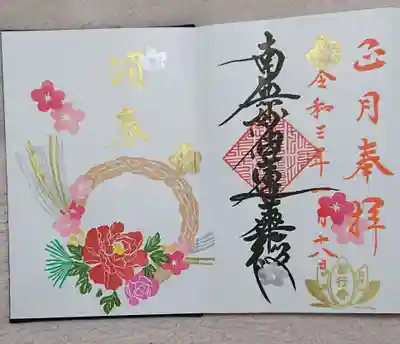 正月奉拝
令和三年 月十八日
南無妙法蓮華経
頌春